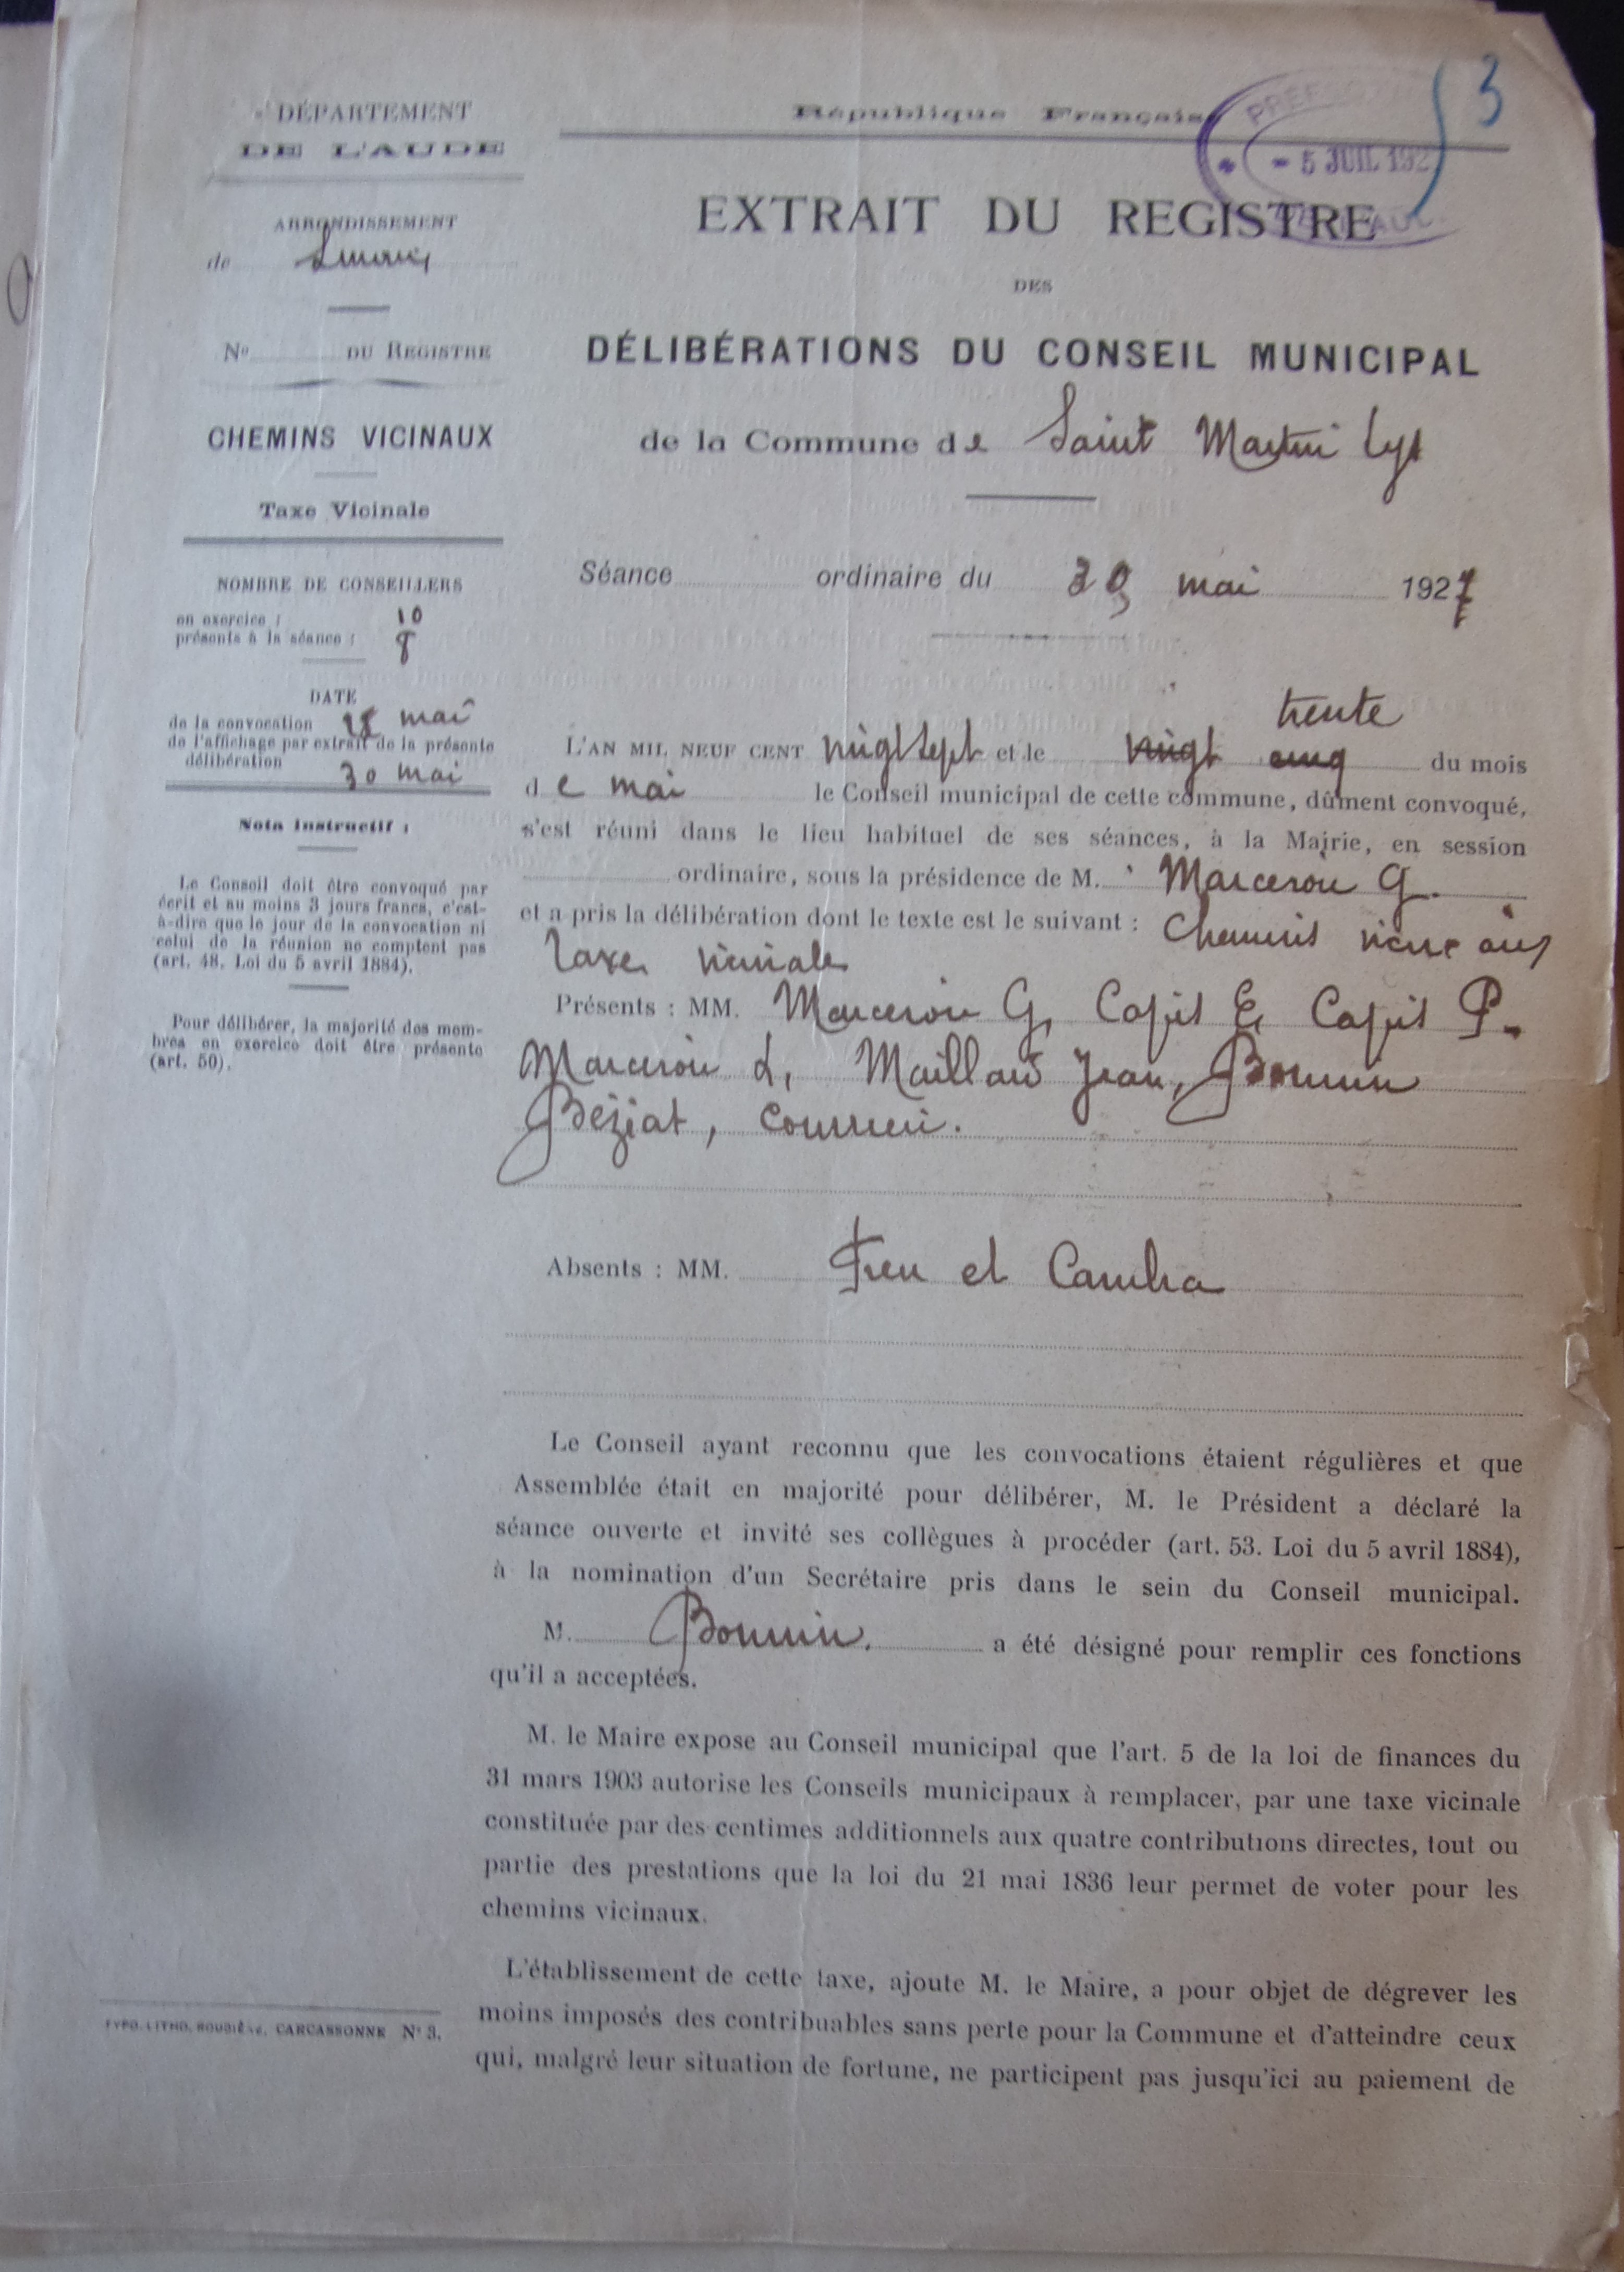 DÉPARTEMENT
DE L'AUDE
ARRONDISSEMENT
de Limoux
No DU REGISTRE
CHEMINS VICINAUX
Taxe Vicinale
NOMBRE DE CONSEILLERS
en exercice : 10
présents à la séance : 8
DATE
de la convocation 18 mai
de l'affichage par extrait de la présente
délibération 30 mai
Nota Instructif :
Le Conseil doit être convoqué par
écrit et au moins 3 jours francs, c'est-
à-dire que le jour de la convocation ni
celui de la réunion ne comptent pas
(art. 48. Loi du 5 avril 1884).
Pour délibérer, la majorité des mem-
bres en exercice doit être présente
(art. 50).
TYPO. LITHO. CARCASSONNE N° 3.
République Française
- 5 JUIL 192
53
EXTRAIT DU REGISTRE
DES
DÉLIBÉRATIONS DU CONSEIL MUNICIPAL
de la Commune de Saint Martin Lys
Séance ordinaire du 30 mai 1927
trente
L'AN MIL NEUF CENT vingt sept et le vingt cinq du mois
de mai le Conseil municipal de cette commune, dûment convoqué,
s'est réuni dans le lieu habituel de ses séances, à la Mairie, en session
ordinaire, sous la présidence de M. Marcerou G.
et a pris la délibération dont le texte est le suivant : Chemins vicinaux
Taxe vicinale
Présents : MM. Marcerou G, Capis E, Capis P.
Marcerou L, Maillard Jean, Bonnin
Béziat,
Absents : MM. et
Le Conseil ayant reconnu que les convocations étaient régulières et que
Assemblée était en majorité pour délibérer, M. le Président a déclaré la
séance ouverte et invité ses collègues à procéder (art. 53. Loi du 5 avril 1884),
à la nomination d'un Secrétaire pris dans le sein du Conseil municipal.
M. Bonnin. a été désigné pour remplir ces fonctions
qu'il a acceptées.
M. le Maire expose au Conseil municipal que l'art. 5 de la loi de finances du
31 mars 1903 autorise les Conseils municipaux à remplacer, par une taxe vicinale
constituée par des centimes additionnels aux quatre contributions directes, tout ou
partie des prestations que la loi du 21 mai 1836 leur permet de voter pour les
chemins vicinaux.
L'établissement de cette taxe, ajoute M. le Maire, a pour objet de dégrever les
moins imposés des contribuables sans perte pour la Commune et d'atteindre ceux
qui, malgré leur situation de fortune, ne participent pas jusqu'ici au paiement de